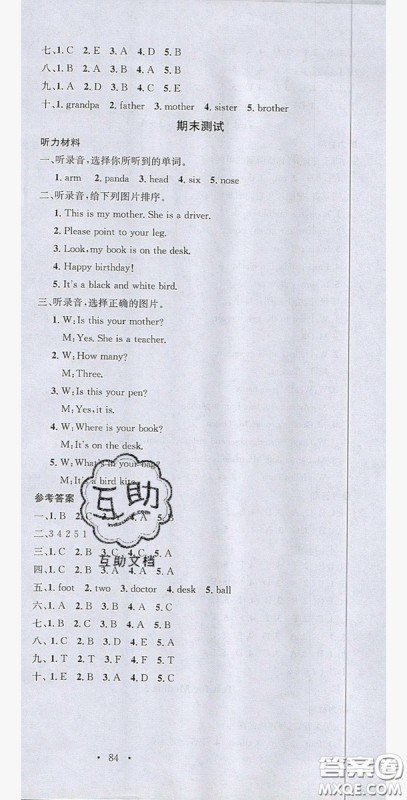 七、1. C 2. E 3. A 4. D 5. B
八、1. B 2. A 3. A 4. B 5. B
九、1. A 2. B 3. D 4. C 5. E
十、1. grandpa 2. father 3. mother 4. sister 5. brother
期末测试
听力材料
一、听录音，选择你所听到的单词。
1. arm 2. panda 3. head 4. six 5. nose
二、听录音，给下列图片排序。
1. This is my mother. She is a driver.
2. Please point to your leg.
3. Look, my book is on the desk.
4. Happy birthday!
5. It's a black and white bird.
三、听录音，选择正确的图片。
1. W: Is this your mother?
M: Yes. She is a teacher.
2. W: How many?
M: Three.
3. W: Is this your pen?
M: Yes, it is.
4. W: Where is your book?
M: It's on the desk.
5. W: What's in your bag?
M: It's a bird kite.
参考答案
一、1. B 2. 4. A 5. B
二、3 4 2 5 1
三、1. C 2. 5. C
四、1. C 2. A 5. A
五、1. foot 2. two 3. doctor 4. desk 5. ball
六、1. A 2. B 3. B 4. A 5. C
七、1. B 2. B 3. A 4. C 5. B
八、1. C 2. B 3. D 4. A 5. E
九、1. T 2. T 3. F 4. F 5. T
十、1. E 2. D 3. B 4. A 5. C
· 84 ·
互助
互助文档
答案圈
MXQE.COM